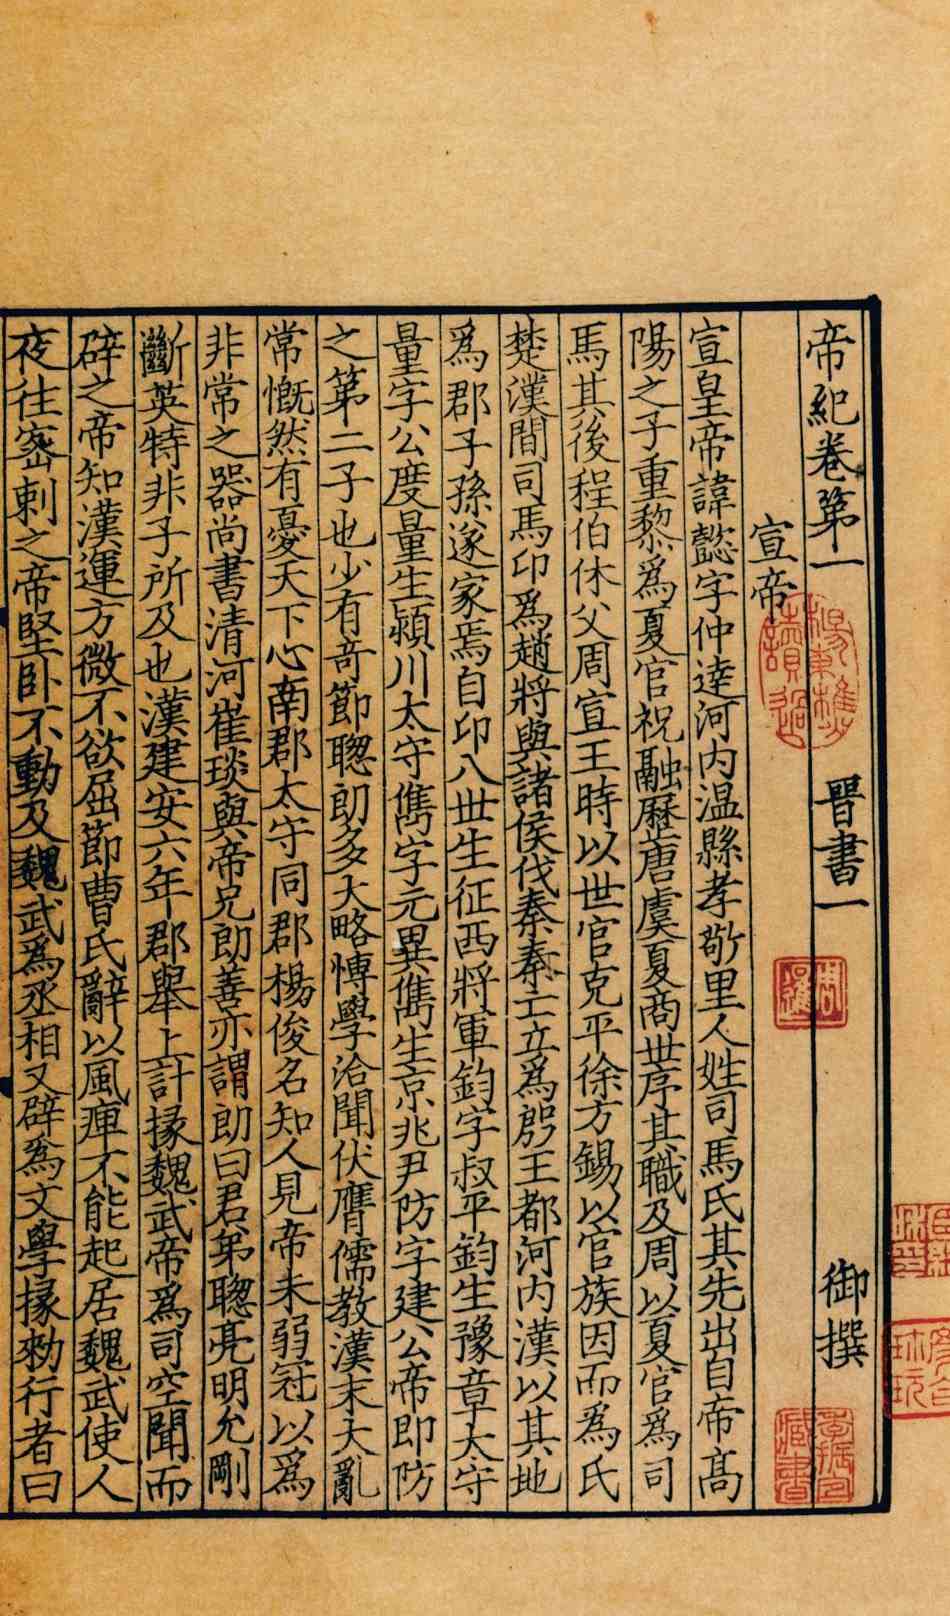 帝紀卷第一 晉書一 御撰
宣帝
宣皇帝諱懿字仲達河内温縣孝敬里人姓司馬氏其先出自帝高
陽之子重黎爲夏官祝融歷唐虞夏商世序其職及周以夏官爲司
馬其後程伯休父周宣王時以世官克平徐方錫以官族因而爲氏
楚漢間司馬卬爲趙將與諸侯伐秦秦亡立爲殷王都河内漢以其地
爲郡子孫遂家焉自卬八世生征西將軍鈞字叔平鈞生豫章太守
量字公度量生潁川太守儁字元異儁生京兆尹防字建公帝即防
之第二子也少有奇節聦朗多大略博學洽聞伏膺儒教漢末大亂
常慨然有憂天下心南郡太守同郡楊俊名知人見帝未弱冠以爲
非常之器尚書清河崔琰與帝兄朗善亦謂朗曰君弟聦亮明允剛
斷英特非子所及也漢建安六年郡舉上計掾魏武帝爲司空聞而
辟之帝知漢運方微不欲屈節曹氏辭以風痺不能起居魏武使人
夜往宻刺之帝堅卧不動及魏武爲丞相又辟爲文學掾勑行者曰